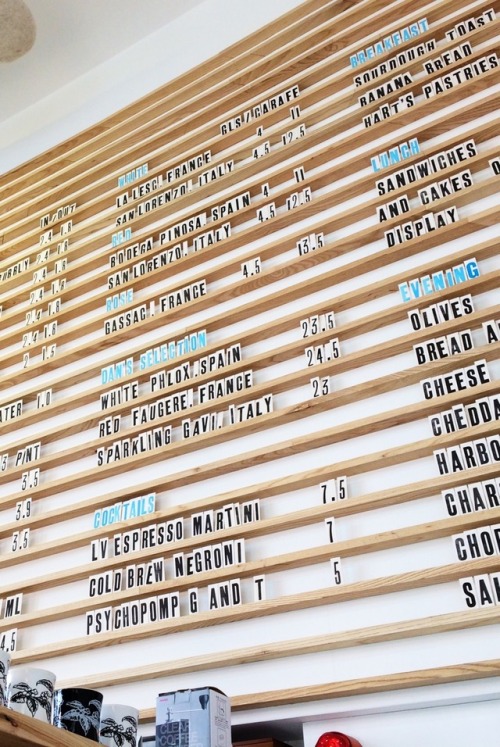 IN/OUT
2.4 1.8
2.4 1.8
2.4 1.8
2.4 1.8
2.4 1.8
2 1.5
1.0
PINT
3.5
3.9
3.5
ML
4.5
GLS/CARAFFE
WHITE
LA LESC, FRANCE 4 11
SAN LORENZO, ITALY 4.5 12.5
RED
BODEGA PINOSA SPAIN 4 11
SAN LORENZO, ITALY 4.5 12.5
ROSE
GASSAC, FRANCE 4.5 13.5
DAN'S SELECTION
WHITE PHLOX, SPAIN 23.5
RED FAUGERE, FRANCE 24.5
SPARKLING GAVI, ITALY 23
COCKTAILS
LV ESPRESSO MARTINI 7.5
COLD BREW NEGRONI 7
PSYCHOPOMP G AND T 5
BREAKFAST
SOURDOUGH TOAST
BANANA BREAD
HART'S PASTRIES
LUNCH
SANDWICHES
AND CAKES
DISPLAY
EVENING
OLIVES
BREAD
CHEESE
CHEDD
HARBO
CHAR
CHO
SA